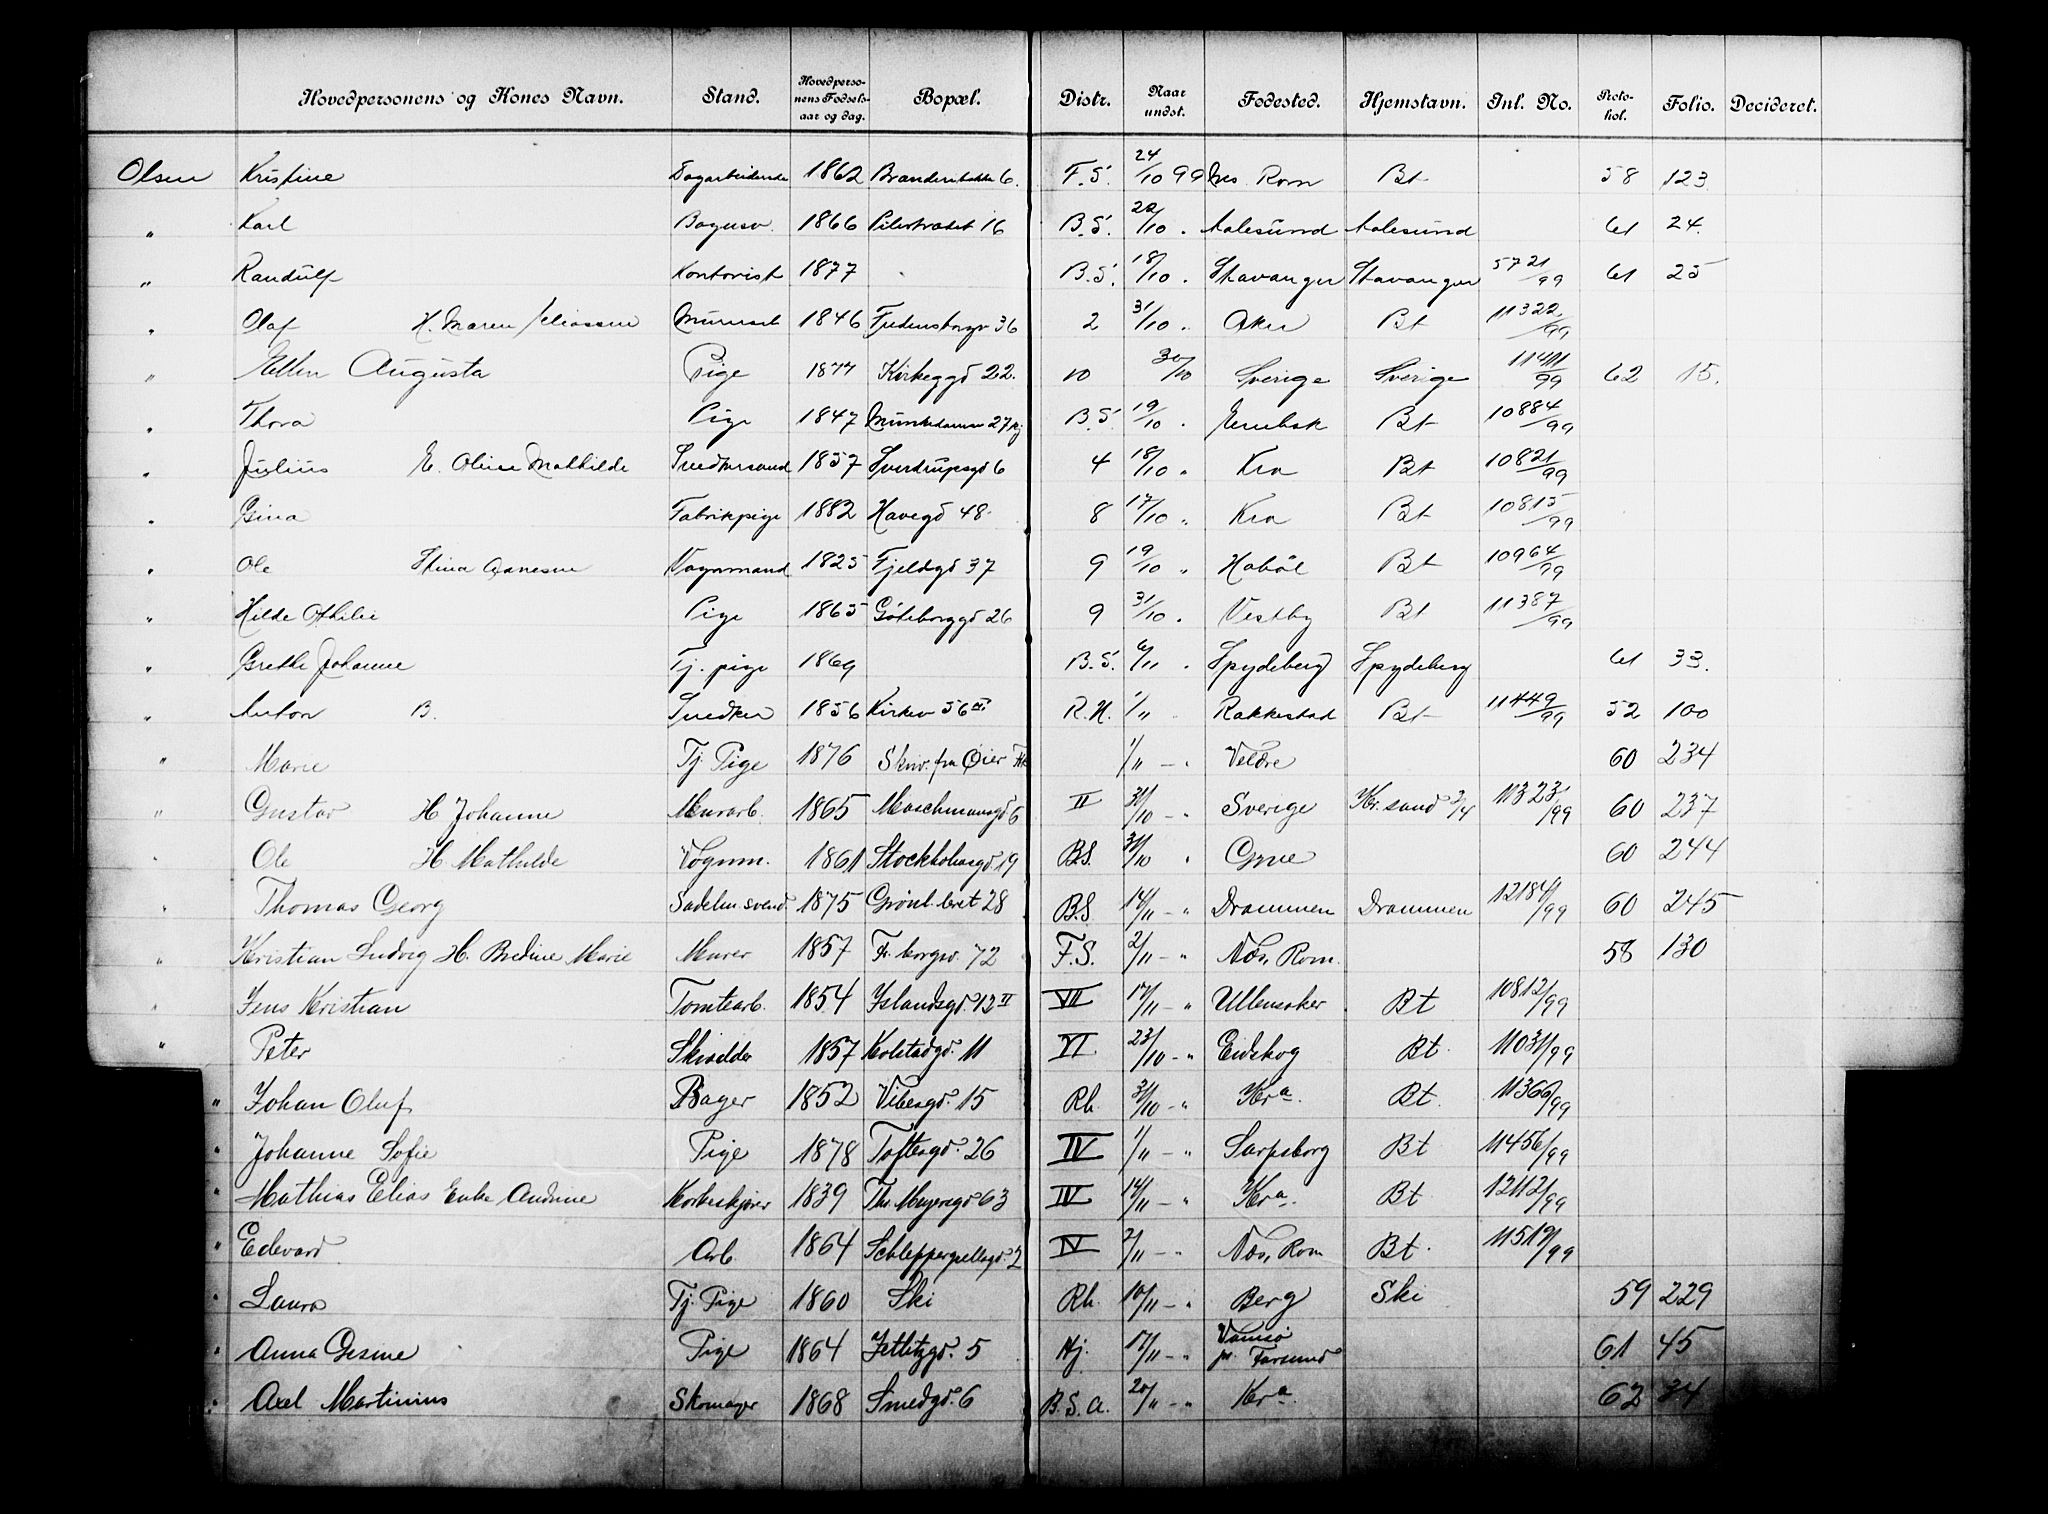 Hovedpersonens og Kones Navn. Stand. Hovedpersonens Fødselsaar og dag. Bopæl. Distr. Naar undst. Fødested. Hjemstavn. Inl. No. Protokol. Folio. Decideret.
Olsen Kristine Dagarbeiderske 1862 6. F.S. 24/10 99 Nes Rom Bt 58 123
" Karl Bagersv. 1866 Pilestrædet 16 B.S. 22/10 " Aalesund Aalesund 61 24.
" Randulf Kontorist 1877 B.S. 18/10 " Stavanger Stavanger 5721/99 61 25
" Olaf H. Maren Eliassen Murersv 1846 Fredensborgv 36 2 31/10 " Aker Bt 11322/99
" Ellen Augusta Pige 1877 Kirkeggd 22. 10 30/10 Sverige Sverige 11411/99 62 15.
" Thora Pige 1847 Munkedamsv 27 B.S. 19/10 " Enebak Bt 10884/99
" Julius E. Oline Mathilde Snedkersvend 1857 Sverdrupsgd 6 4 18/10 " Kra Bt 10821/99
" Gina Fabrikpige 1882 Havegd 48 8 17/10 " Kra Bt 10815/99
" Ole Stina Aanesen Vognmand 1825 Fjeldgd 37 9 19/10 " Hobøl Bt 10964/99
" Hilde Othilie Pige 1865 Göteborggd 26 9 31/10 " Vestby Bt 11387/99
" Grethe Johanne Tj. pige 1869 B.S. 6/11 " Spydeberg Spydeberg 61 33.
" Anton B. Snedker 1856 Kirkev 56 III R.H. 1/11 Rakkestad Bt 11449/99 52 100
" Marie Tj. Pige 1876 Skriv. fra Øier 1/11 - " Veldre 60 234
" Gustav H Johanne Murarb. 1865 Maschmansgd 6 II 31/10 - " Sverige Kr.sand 3/4 11323/99 60 237
" Ole H Mathilde Vognm. 1861 Stockholmsgd. 19 B.S. 31/10 " Grue 60 244
" Thomas Georg Sadelm.svend 1875 Grønl. leret 28 B.S. 14/11 - " Drammen Drammen 12184/99 60 245
" Kristian Ludvig H. Bredine Marie Murer 1857 Fr. borgsv. 72 F.S. 2/11 - " Næs, Rom. 58 130
" Jens Kristian Tomtearb. 1854 Islandsgd. 12 II VII 17/11 - " Ullensaker Bt 10812/99
" Peter Skrædder 1857 Kolstadgd. 11 VI 23/10 - " Eidskog Bt. 11031/99
" Johan Oluf Bager 1852 Vibesgd. 15 Rh. 31/10 - " Kra. Bt. 11366/99
" Johanne Sofie Pige 1878 Toftesgd. 26 IV 1/11 - " Sarpsborg Bt 11456/99
" Mathias Elias Enke Andrine Korbeskjører 1839 Th. Meyersgd 63 IV 14/11 - " Kra. Bt 12112/99
" Edevard Arb. 1864 Schleppegrellsgd. 2 IV 2/11 - " Næs, Rom Bt. 11519/99
" Laura Tj. Pige 1860 Ski Rh. 10/11 - " Berg Ski 59 229
" Anna Gesine Pige 1864 Jetletzgd. 5 Hj. 17/11 - " Vansø pr. Farsund 61 45
" Axel Martinius Skomager 1868 Smedgd. 6 B.S.A. 20/11 - " Kra. 62 34